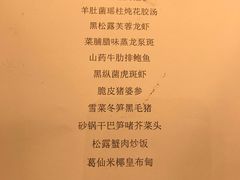 羊肚菌瑶柱炖花胶汤
黑松露芙蓉龙虾
菜脯腊味蒸龙趸斑
山药牛肋排鲍鱼
黑纵菌虎斑虾
脆皮猪婆参
雪菜冬笋黑毛猪
砂锅干巴笋啫芥菜头
松露蟹肉炒饭
葛仙米椰皇布甸